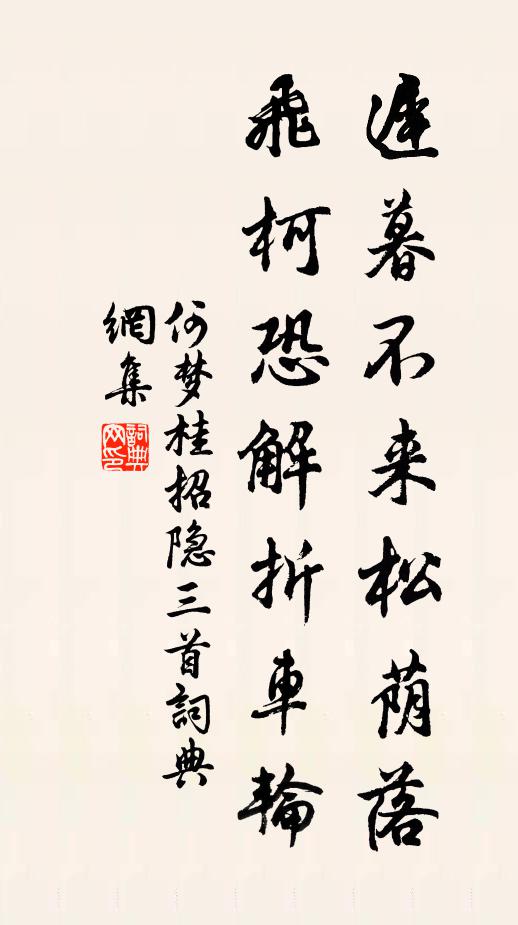 遲暮不来松荫落
飛柯恐解折車輪
何梦桂招隐三首詞典
網集
詞典
网印